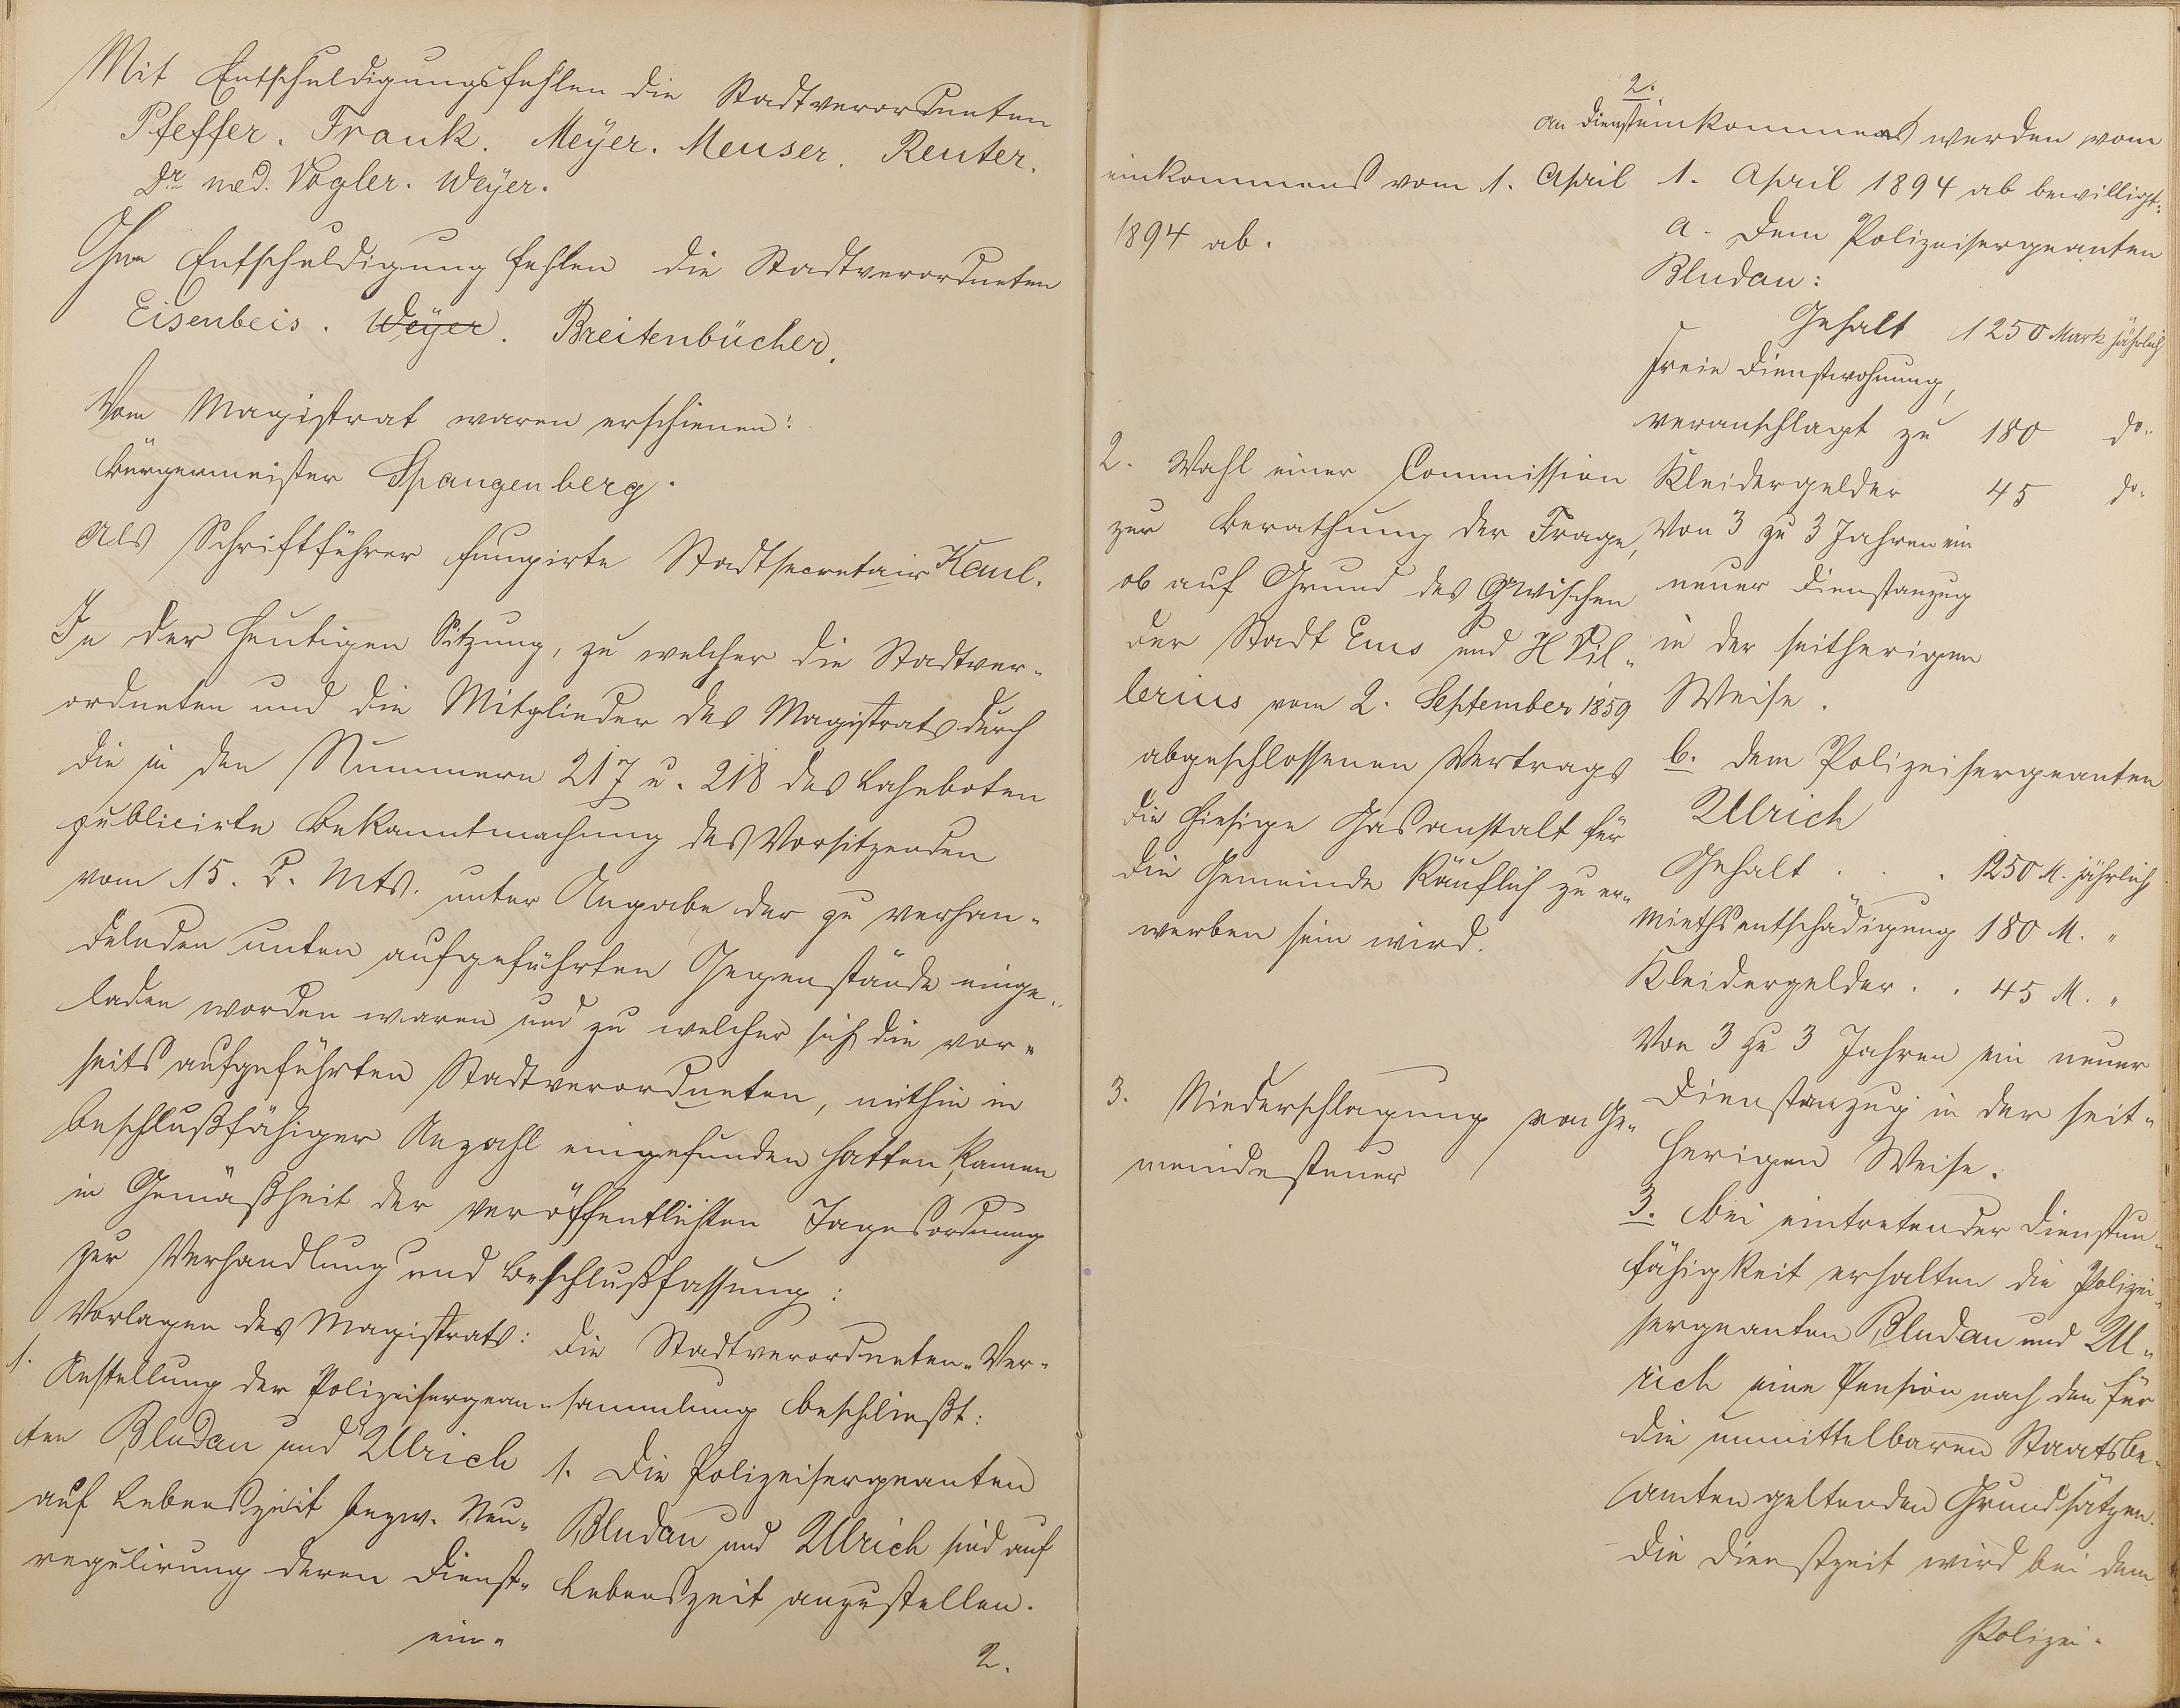 Mit Entschuldigung fehlen die Stadtverordneten
Pfeffer. Frank. Meÿer. Meuser. Reuter.
Dr med. Vogler. Weÿer.
Ohne Entschuldigung fehlen die Stadtverordneten
Eisenbeis. Weÿer. Breitenbücher.
Vom Magistrat waren erschienen:
Bürgermeister Spangenberg.
Als Schriftführer fungirte Stadtsecretair Kaul.
In der heutigen Sitzung, zu welcher die Stadtver-
ordneten und die Mitglieder des Magistrats durch
die in den Nummern 217 u. 218 des Lahnboten
publicirte Bekanntmachung des Vorsitzenden
vom 15. d. Mts. unter Angabe der zu verhan-
delnden unten aufgeführten Gegenstände einge-
laden worden waren und zu welcher sich die vor-
seits aufgeführten Stadtverordneten, mithin in
beschlußfähiger Anzahl eingefunden hatten, kamen
in Gemäßheit der veröffentlichten Tagesordnung
zur Verhandlung und Beschlußfassung:
Vorlagen des Magistrats:
1. Anstellung der Polizeisergean-
ten Bludau und Ulrich
auf Lebenszeit bezw. Neu-
regulirung deren Dienst-
ein-
Die Stadtverordneten-Ver-
sammlung beschließt:
1. Die Polizeisergeanten
Bludau und Ulrich sind auf
Lebenszeit anzustellen.
2.
einkommens vom 1. April
1894 ab.
2. Wahl einer Commission
zur Berathung der Frage,
ob auf Grund des zwischen
der Stadt Ems und H Dil-
lerius vom 2. September 1859
abgeschlossenen Vertrags
die hiesige Gasanstalt für
die Gemeinde käuflich zu er-
werben sein wird.
3. Niederschlagung von Ge-
meindesteuer
2.
An Diensteinkommen werden vom
1. April 1894 ab bewilligt:
a. dem Polizeisergeanten
Bludau:
Gehalt 1250 Mark jährlich
Freie Dienstwohnung,
veranschlagt zu 180 do.
Kleidergelder 45 do.
Von 3 zu 3 Jahren ein
neuer Dienstanzug
in der seitherigen
Weise.
b. dem Polizeisergeanten
Ulrich
Gehalt . . . 1250 M. jährlich
Miethsentschädigung 180 M. "
Kleidergelder . . 45 M. "
Von 3 zu 3 Jahren ein neuer
Dienstanzug in der seit-
herigen Weise.
3. Bei eintretender Dienstun-
fähigkeit erhalten die Polizei-
sergeanten Bludau und Ul-
rich eine Pension nach den für
die unmittelbaren Staatsbe-
amten geltenden Grundsätzen.
Die Dienstzeit wird bei dem
Polizei-